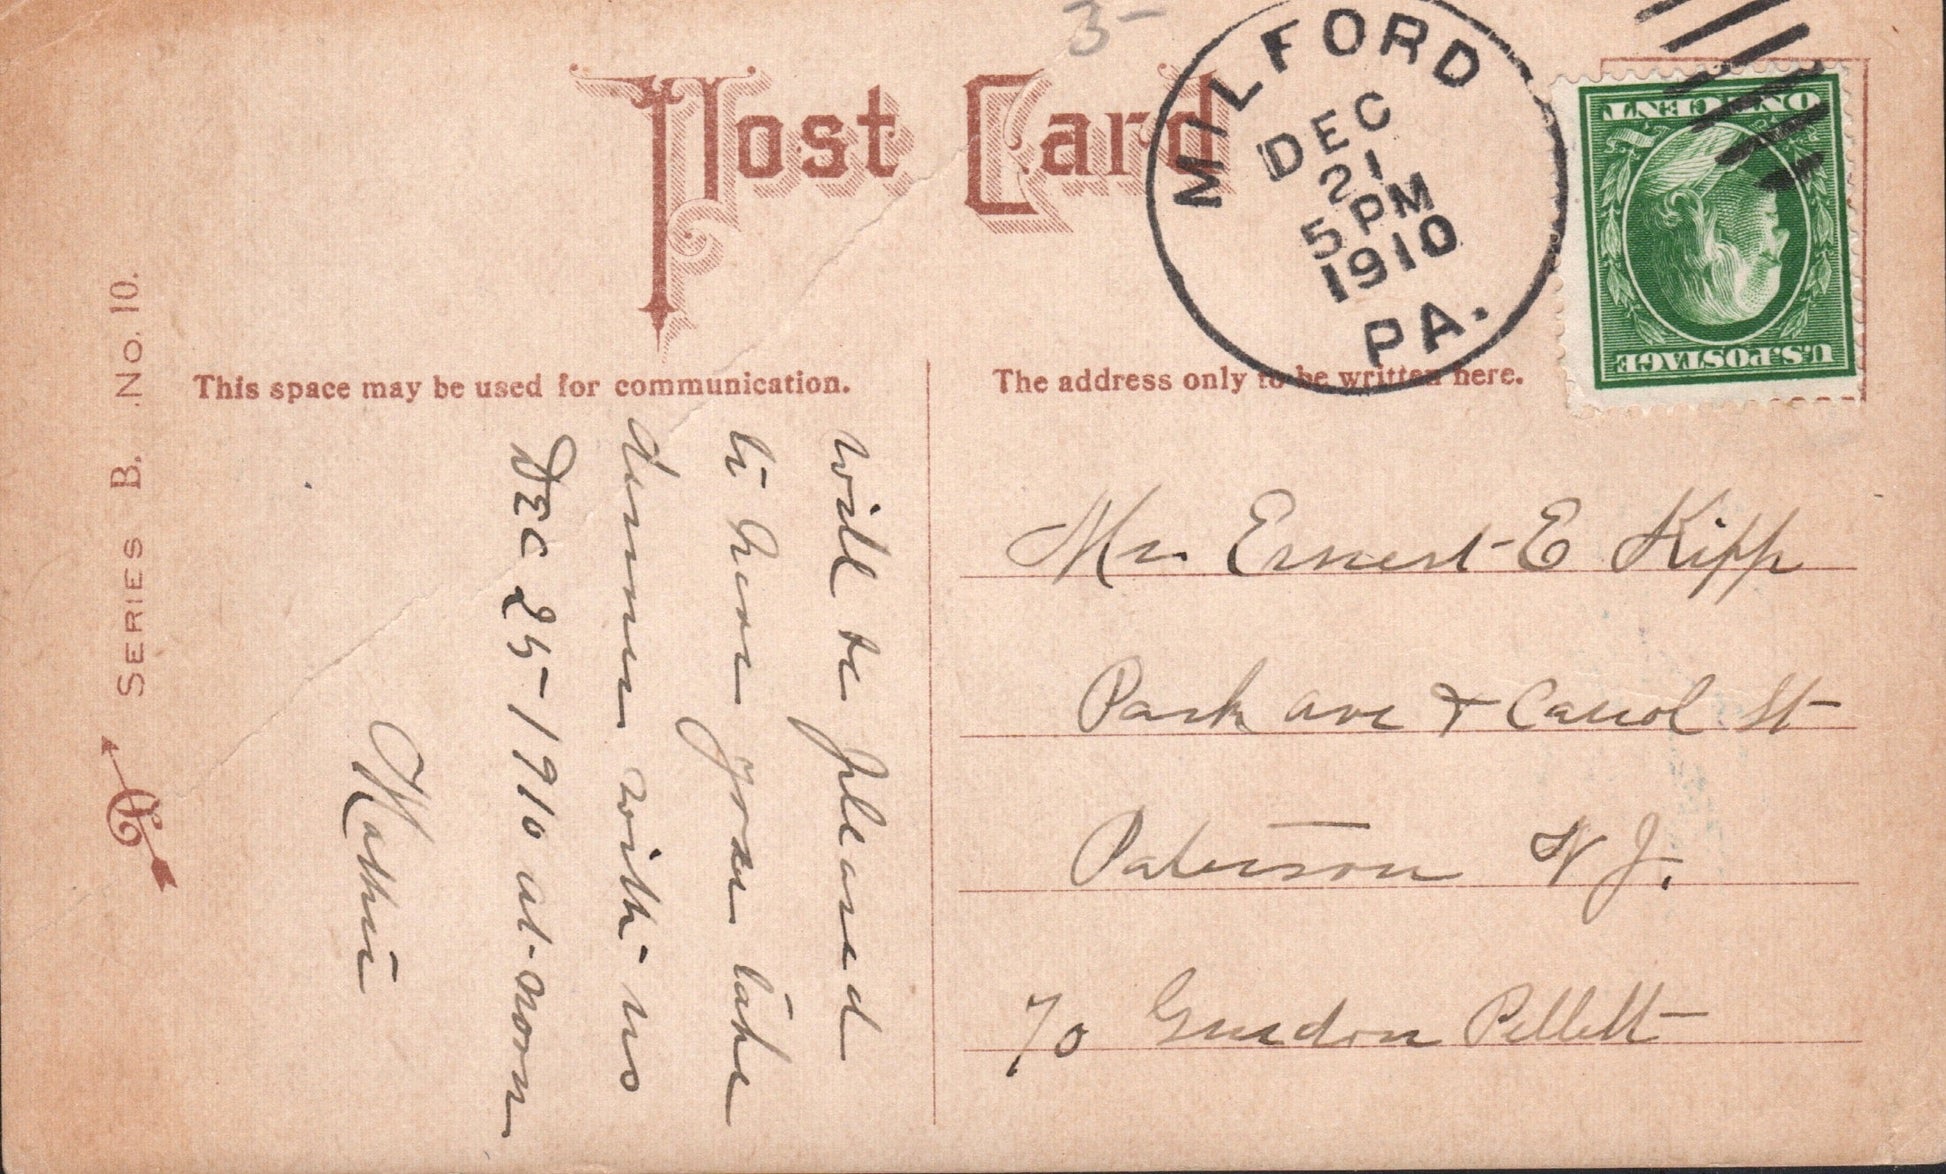 3-
Post Card
MILFORD
DEC
21
5 PM
1910
PA.
ONE CENT
U.S. POSTAGE
SERIES B. No. 10.
This space may be used for communication.
The address only to be written here.
will be pleased
to have you take
dinner with us
Dec 25-1910 at-noon
Mr Ernest E Kipp
Park ave + Carrol St
Paterson N J.
c/o Gurdon Pellett